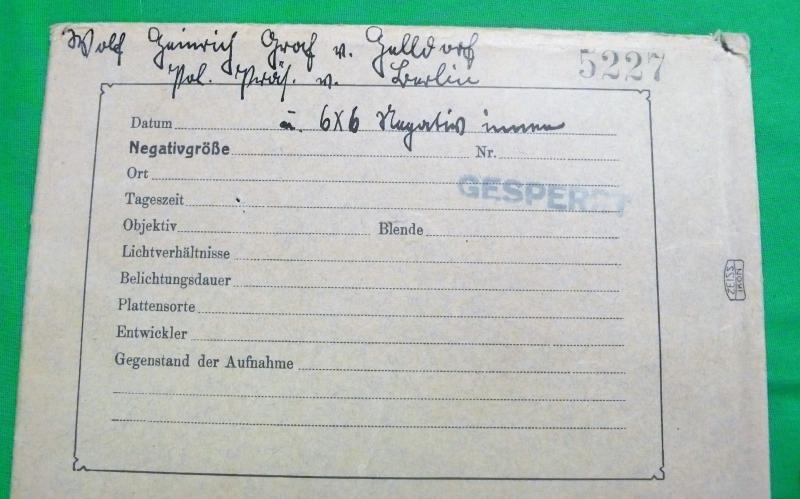 Wolf Heinrich Graf v. Helldorf
5227
Pol. Präs. v. Berlin
u. 6X6 Negativ innen
Datum
Negativgröße Nr.
Ort
GESPERRT
Tageszeit
Objektiv Blende
Lichtverhältnisse
Belichtungsdauer
Plattensorte
Entwickler
Gegenstand der Aufnahme
ZEISS
IKON